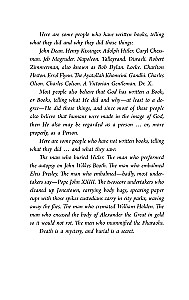 Here are some people who have written books, telling
what they did and why they did those things:
John Dean. Henry Kissinger. Adolph Hitler. Caryl Chess-
man. Jeb Magruder. Napoleon. Talleyrand. Disraeli. Robert
Zimmerman, also known as Bob Dylan. Locke. Charlton
Heston. Errol Flynn. The Ayatollah Khomeini. Gandhi. Charles
Olson. Charles Colson. A Victorian Gentleman. Dr. X.
Most people also believe that God has written a Book,
or Books, telling what He did and why—at least to a de-
gree—He did those things, and since most of these people
also believe that humans were made in the image of God,
then He also may be regarded as a person . . . or, more
properly, as a Person.
Here are some people who have not written books, telling
what they did . . . and what they saw:
The man who buried Hitler. The man who performed
the autopsy on John Wilkes Booth. The man who embalmed
Elvis Presley. The man who embalmed—badly, most under-
takers say—Pope John XXIII. The twoscore undertakers who
cleaned up Jonestown, carrying body bags, spearing paper
cups with those spikes custodians carry in city parks, waving
away the flies. The man who cremated William Holden. The
man who encased the body of Alexander the Great in gold
so it would not rot. The men who mummified the Pharaohs.
Death is a mystery, and burial is a secret.